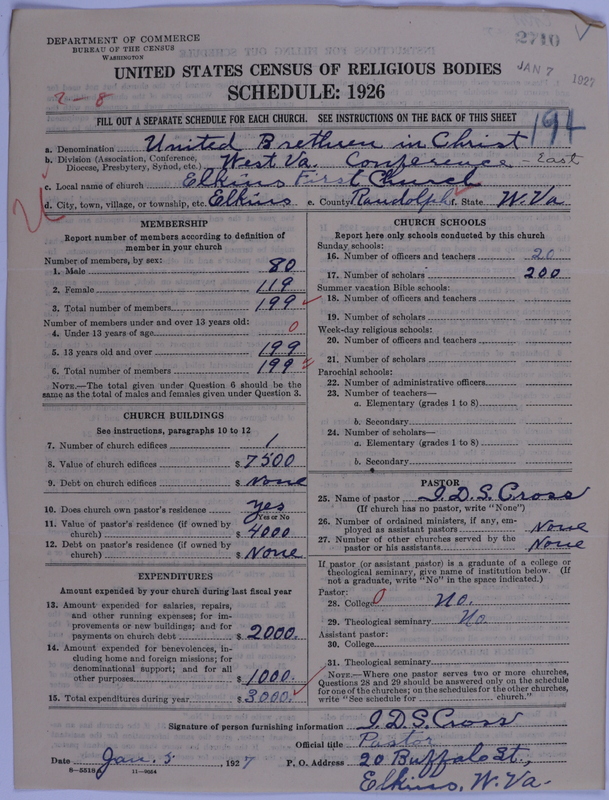 DEPARTMENT OF COMMERCE
BUREAU OF THE CENSUS
WASHINGTON
2710
JAN 7 1927
UNITED STATES CENSUS OF RELIGIOUS BODIES
SCHEDULE: 1926
2-8
FILL OUT A SEPARATE SCHEDULE FOR EACH CHURCH. SEE INSTRUCTIONS ON THE BACK OF THIS SHEET
194
a. Denomination United Brethren in Christ
b. Division (Association, Conference, Diocese, Presbytery, Synod, etc.) West Va. Conference - East
c. Local name of church Elkins First Church
d. City, town, village, or township, etc. Elkins e. County Randolph f. State W. Va.
MEMBERSHIP
Report number of members according to definition of
member in your church
Number of members, by sex:
1. Male 80
2. Female 119
3. Total number of members 199
Number of members under and over 13 years old:
4. Under 13 years of age 0
5. 13 years old and over 199
6. Total number of members 199
NOTE.—The total given under Question 6 should be
same as the total of males and females given under Question 3.
CHURCH BUILDINGS
See instructions, paragraphs 10 to 12
7. Number of church edifices 1
8. Value of church edifices $ 7500
9. Debt on church edifices $ None
10. Does church own pastor's residence yes
Yes or No
11. Value of pastor's residence (if owned by
church) $ 4000
12. Debt on pastor's residence (if owned by
church) $ None
EXPENDITURES
Amount expended by your church during last fiscal year
13. Amount expended for salaries, repairs,
and other running expenses; for im-
provements or new buildings; and for
payments on church debt $ 2000.
14. Amount expended for benevolences, in-
cluding home and foreign missions; for
denominational support; and for all
other purposes $ 1000.
15. Total expenditures during year $ 3000.
CHURCH SCHOOLS
Report here only schools conducted by this church
Sunday schools:
16. Number of officers and teachers 20
17. Number of scholars 200
Summer vacation Bible schools:
18. Number of officers and teachers
19. Number of scholars
Week-day religious schools:
20. Number of officers and teachers
21. Number of scholars
Parochial schools:
22. Number of administrative officers
23. Number of teachers—
a. Elementary (grades 1 to 8)
b. Secondary
24. Number of scholars—
a. Elementary (grades 1 to 8)
b. Secondary
PASTOR
25. Name of pastor I. D. S. Cross
(If church has no pastor, write "None")
26. Number of ordained ministers, if any, em-
ployed as assistant pastors None
27. Number of other churches served by the
pastor or his assistants None
If pastor (or assistant pastor) is a graduate of a college or
theological seminary, give name of institution below. (If
not a graduate, write "No" in the space indicated.)
Pastor:
28. College 0 No.
29. Theological seminary No
Assistant pastor:
30. College
31. Theological seminary
NOTE.—Where one pastor serves two or more churches,
Questions 28 and 29 should be answered only on the schedule
for one of the churches; on the schedules for the other churches,
write "See schedule for church."
Signature of person furnishing information I. D. S. Cross
Official title Pastor
Date Jan. 5. 1927 P. O. Address 20 Buffalo St.,
8-5518 11-9664
Elkins, W. Va.